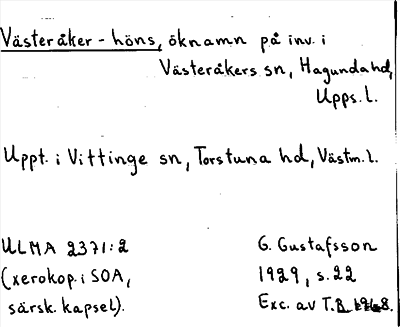 Västeråker-höns, öknamn på inv. i
Västeråkers sn, Hagunda hd,
Upps. l.
Uppt. i Vittinge sn, Torstuna hd, Västm. l.
ULMA 2371:2
(xerokop. i SOA,
särsk. kapsel).
G. Gustafsson
1929, s. 22
Exc. av T.B. 1968.